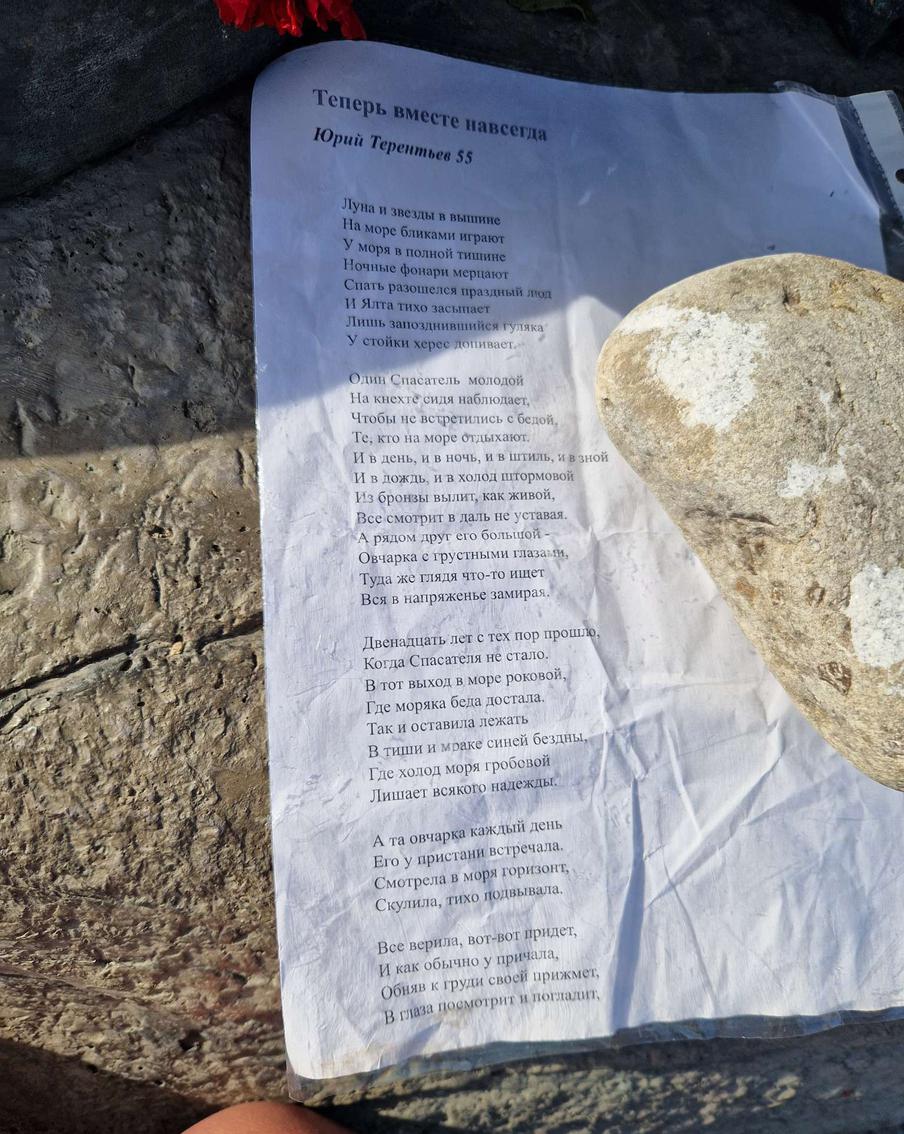 Теперь вместе навсегда
Юрий Терентьев 55
Луна и звезды в вышине
На море бликами играют
У моря в полной тишине
Ночные фонари мерцают
Спать разошелся праздный люд
И Ялта тихо засыпает
Лишь запозднившийся гуляка
У стойки херес допивает.
Один Спасатель молодой
На кнехте сидя наблюдает,
Чтобы не встретились с бедой,
Те, кто на море отдыхают.
И в день, и в ночь, и в штиль, и в зной
И в дождь, и в холод штормовой
Из бронзы вылит, как живой,
Все смотрит в даль не уставая.
А рядом друг его большой -
Овчарка с грустными глазами,
Туда же глядя что-то ищет
Вся в напряженье замирая.
Двенадцать лет с тех пор прошло,
Когда Спасателя не стало.
В тот выход в море роковой,
Где моряка беда достала.
Так и оставила лежать
В тиши и мраке синей бездны,
Где холод моря гробовой
Лишает всякого надежды.
А та овчарка каждый день
Его у пристани встречала.
Смотрела в моря горизонт,
Скулила, тихо подвывала.
Все верила, вот-вот придет,
И как обычно у причала,
Обняв к груди своей прижмет,
В глаза посмотрит и погладит,